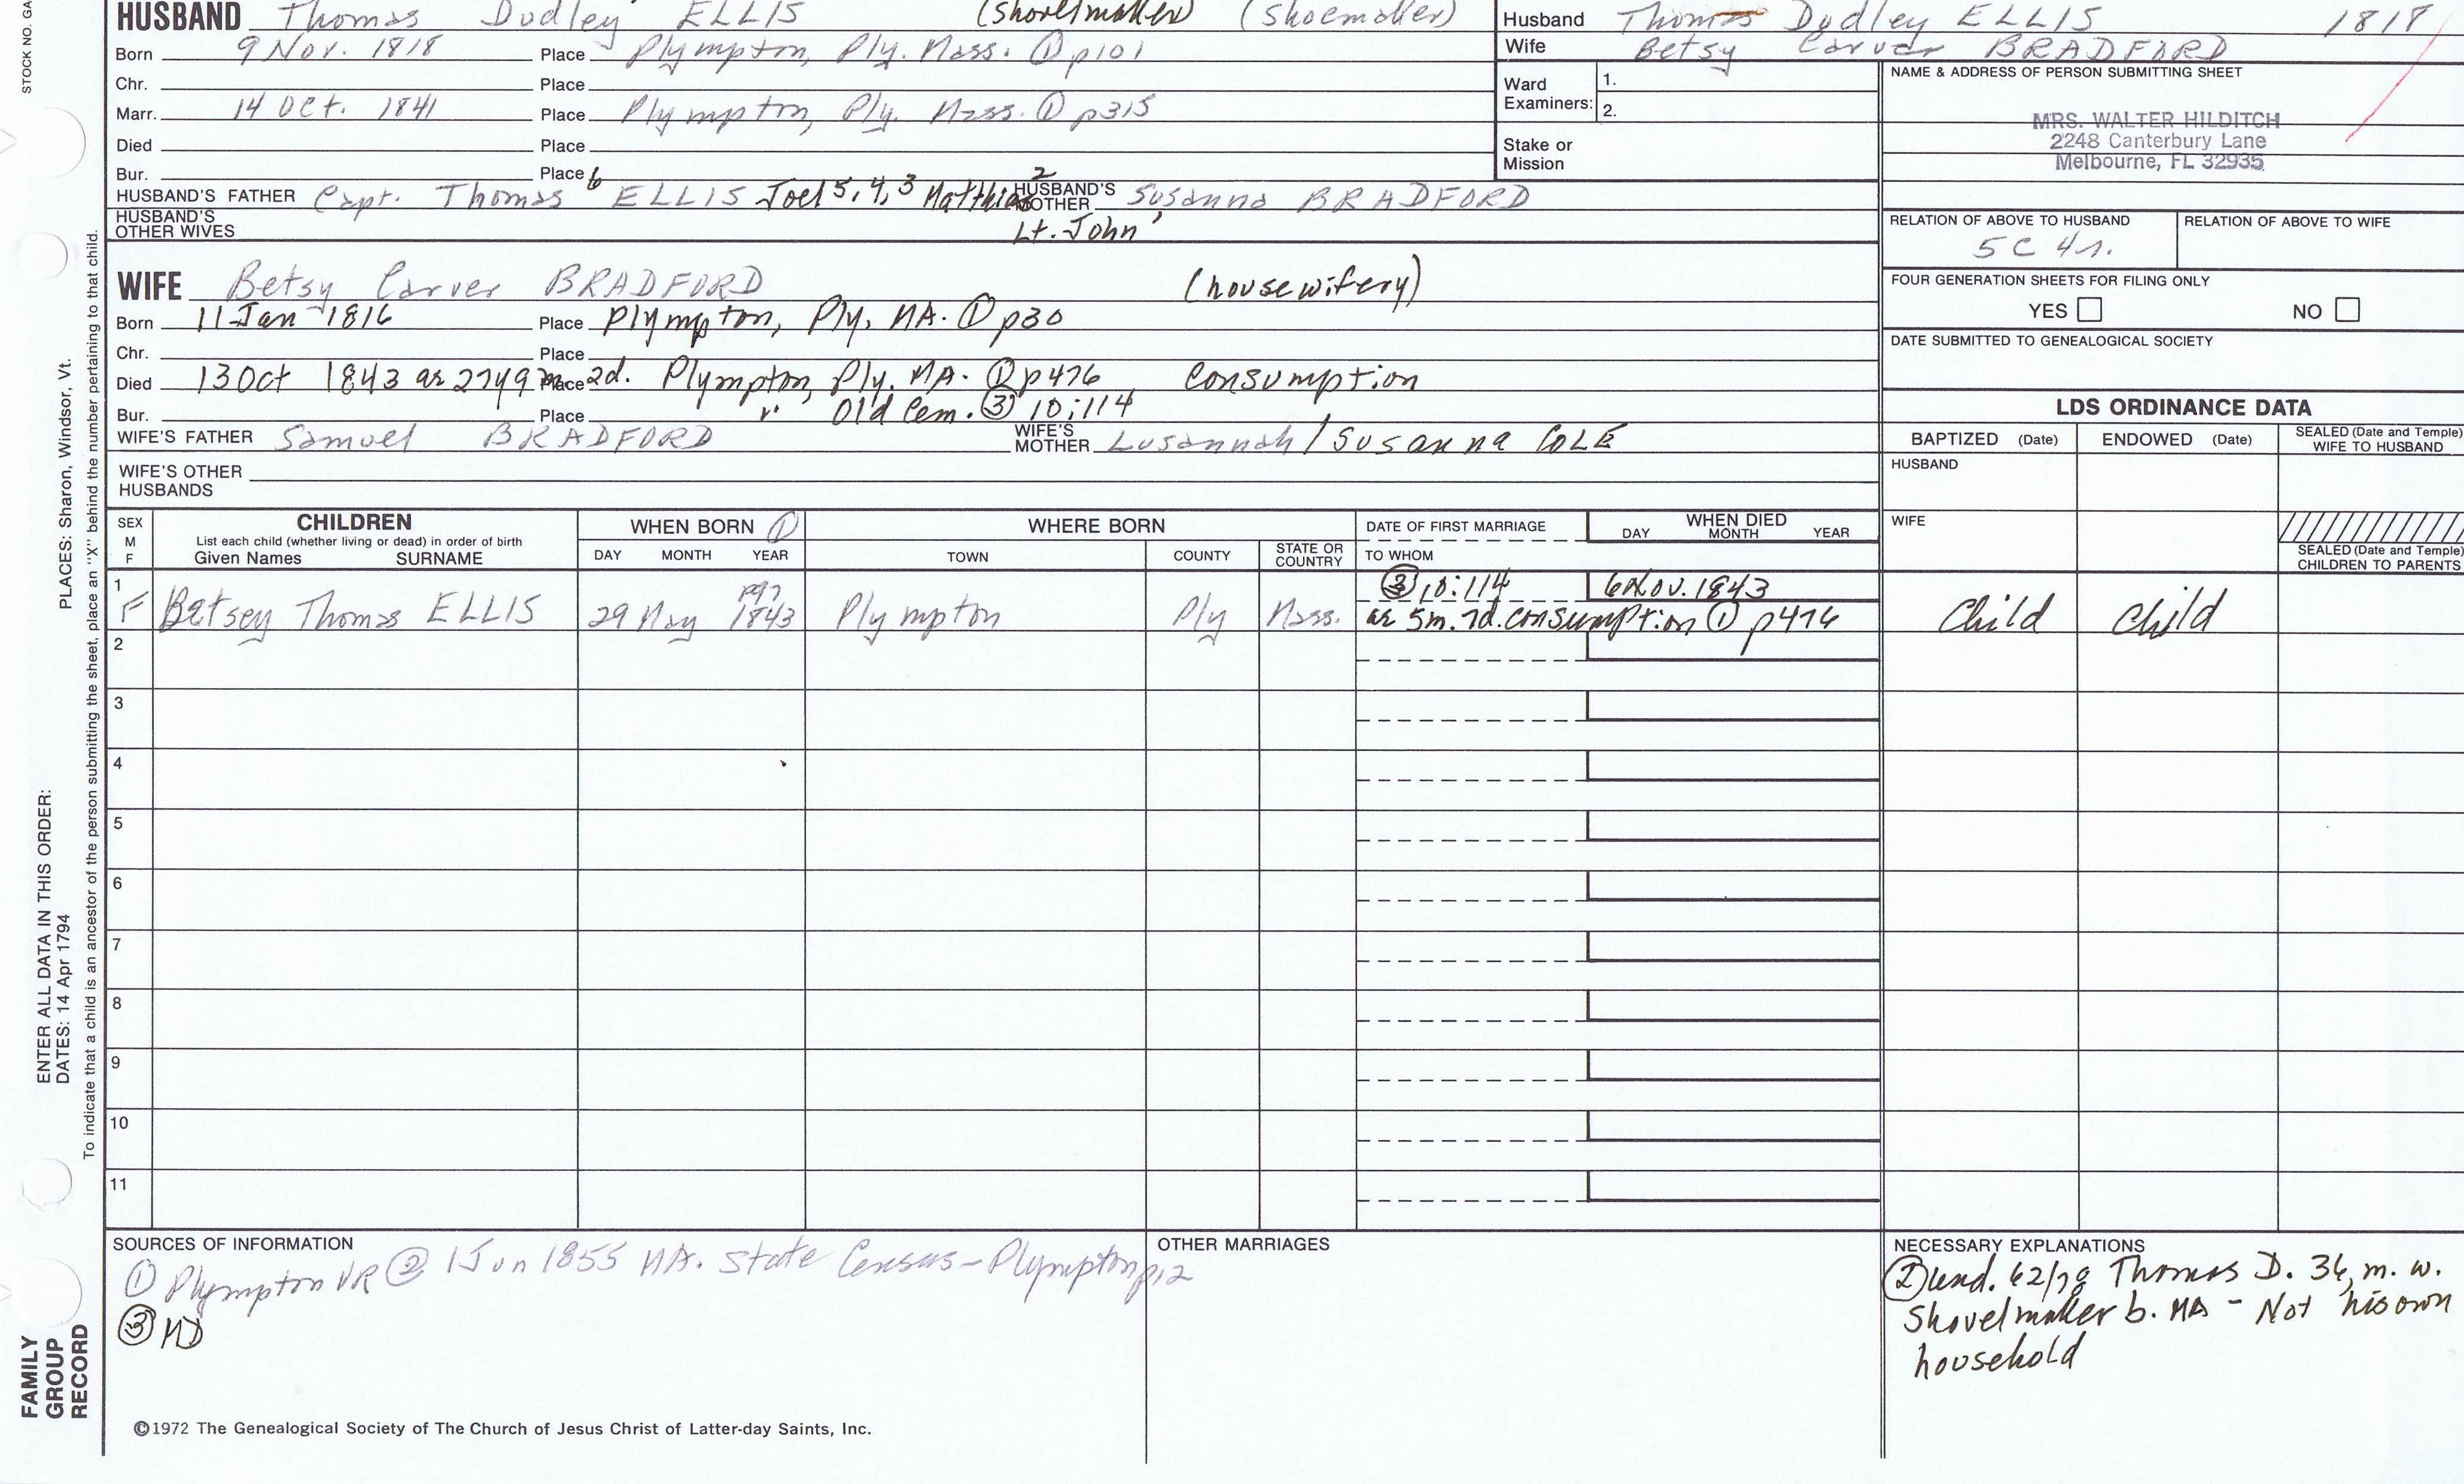 STOCK NO. GA
PLACES: Sharon, Windsor, Vt.
ENTER ALL DATA IN THIS ORDER:
DATES: 14 Apr 1794
To indicate that a child is an ancestor of the person submitting the sheet, place an "X" behind the number pertaining to that child.
FAMILY
GROUP
RECORD
HUSBAND Thomas Dudley ELLIS (shovelmaker) (shoemaker)
Born 9 Nov. 1818 Place Plympton, Ply. Mass. ① p101
Chr. Place
Marr. 14 Oct. 1841 Place Plympton, Ply. Mass. ① p315
Died Place
Bur. Place
HUSBAND'S FATHER Capt. Thomas 6 ELLIS Joel 5, 4, 3 Matthias 2 HUSBAND'S MOTHER Susanna BRADFORD
HUSBAND'S OTHER WIVES Lt. John
WIFE Betsy Carver BRADFORD (housewifery)
Born 11 Jan 1816 Place Plympton, Ply, MA. ① p30
Chr. Place
Died 13 Oct 1843 ae 27y 9m 2d. Place Plympton, Ply. MA. ① p476 Consumption
Bur. Place Old Cem. ③ 10:114
WIFE'S FATHER Samuel BRADFORD WIFE'S MOTHER Lusannah / Susanna COLE
WIFE'S OTHER
HUSBANDS
Husband Thomas Dudley ELLIS 1818
Wife Betsy Carver BRADFORD
Ward Examiners: 1.
2.
Stake or
Mission
NAME & ADDRESS OF PERSON SUBMITTING SHEET
MRS. WALTER HILDITCH
2248 Canterbury Lane
Melbourne, FL 32935
RELATION OF ABOVE TO HUSBAND RELATION OF ABOVE TO WIFE
5C 4r.
FOUR GENERATION SHEETS FOR FILING ONLY
YES NO
DATE SUBMITTED TO GENEALOGICAL SOCIETY
LDS ORDINANCE DATA
BAPTIZED (Date) ENDOWED (Date) SEALED (Date and Temple) WIFE TO HUSBAND
HUSBAND
WIFE
SEALED (Date and Temple)
CHILDREN TO PARENTS
SEX M F
CHILDREN
List each child (whether living or dead) in order of birth
Given Names SURNAME
WHEN BORN ①
DAY MONTH YEAR
WHERE BORN
TOWN COUNTY STATE OR COUNTRY
DATE OF FIRST MARRIAGE
TO WHOM
WHEN DIED
DAY MONTH YEAR
1 p97 ③ 10:114 6 Nov. 1843
F Betsey Thomas ELLIS 29 May 1843 Plympton Ply Mass. ae 5m. 7d. consumption ① p476 Child Child
2
3
4
5
6
7
8
9
10
11
SOURCES OF INFORMATION
① Plympton VR ② 1 Jun 1855 MA. State Census - Plympton p12
③ MD
OTHER MARRIAGES
NECESSARY EXPLANATIONS
② und. 62/78 Thomas D. 36, m. w.
Shovelmaker b. MA - Not his own
household
©1972 The Genealogical Society of The Church of Jesus Christ of Latter-day Saints, Inc.